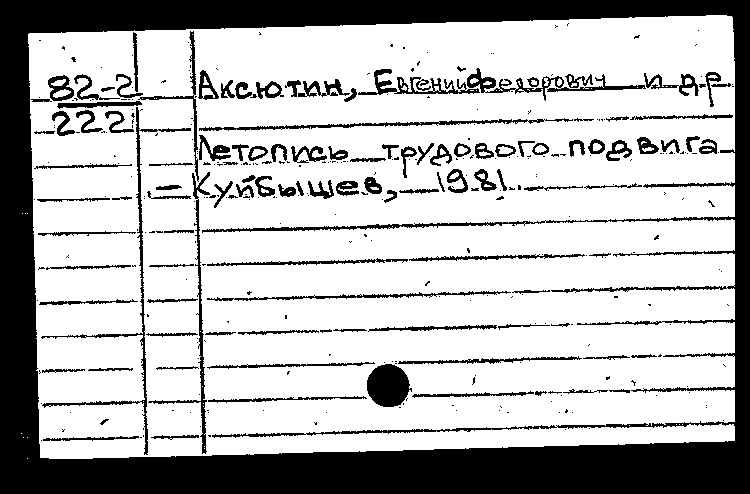 82-2
222
Аксютин, Евгений Федорович и др
Летопись трудового подвига
— Куйбышев, 1981.